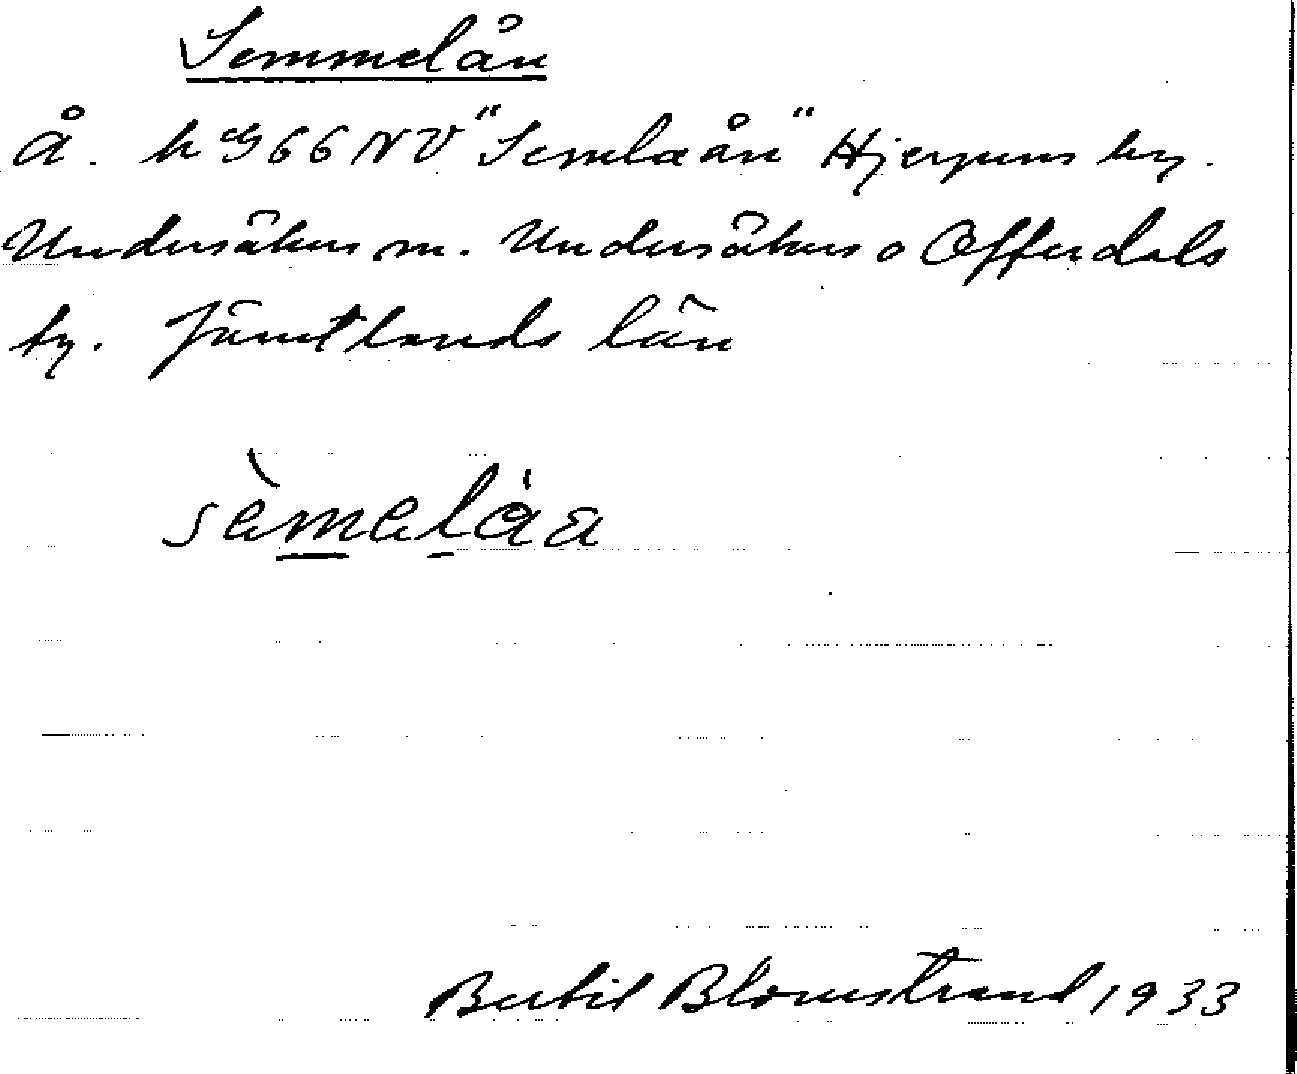 Semmelån
Å. k ᵍ 66 NV "Semlaån" Hjerpens by.
Undersåkers m. Undersåkers o Offerdals
ty. Jämtlands län
sèmelåa
Bertil Blomstrand 1933